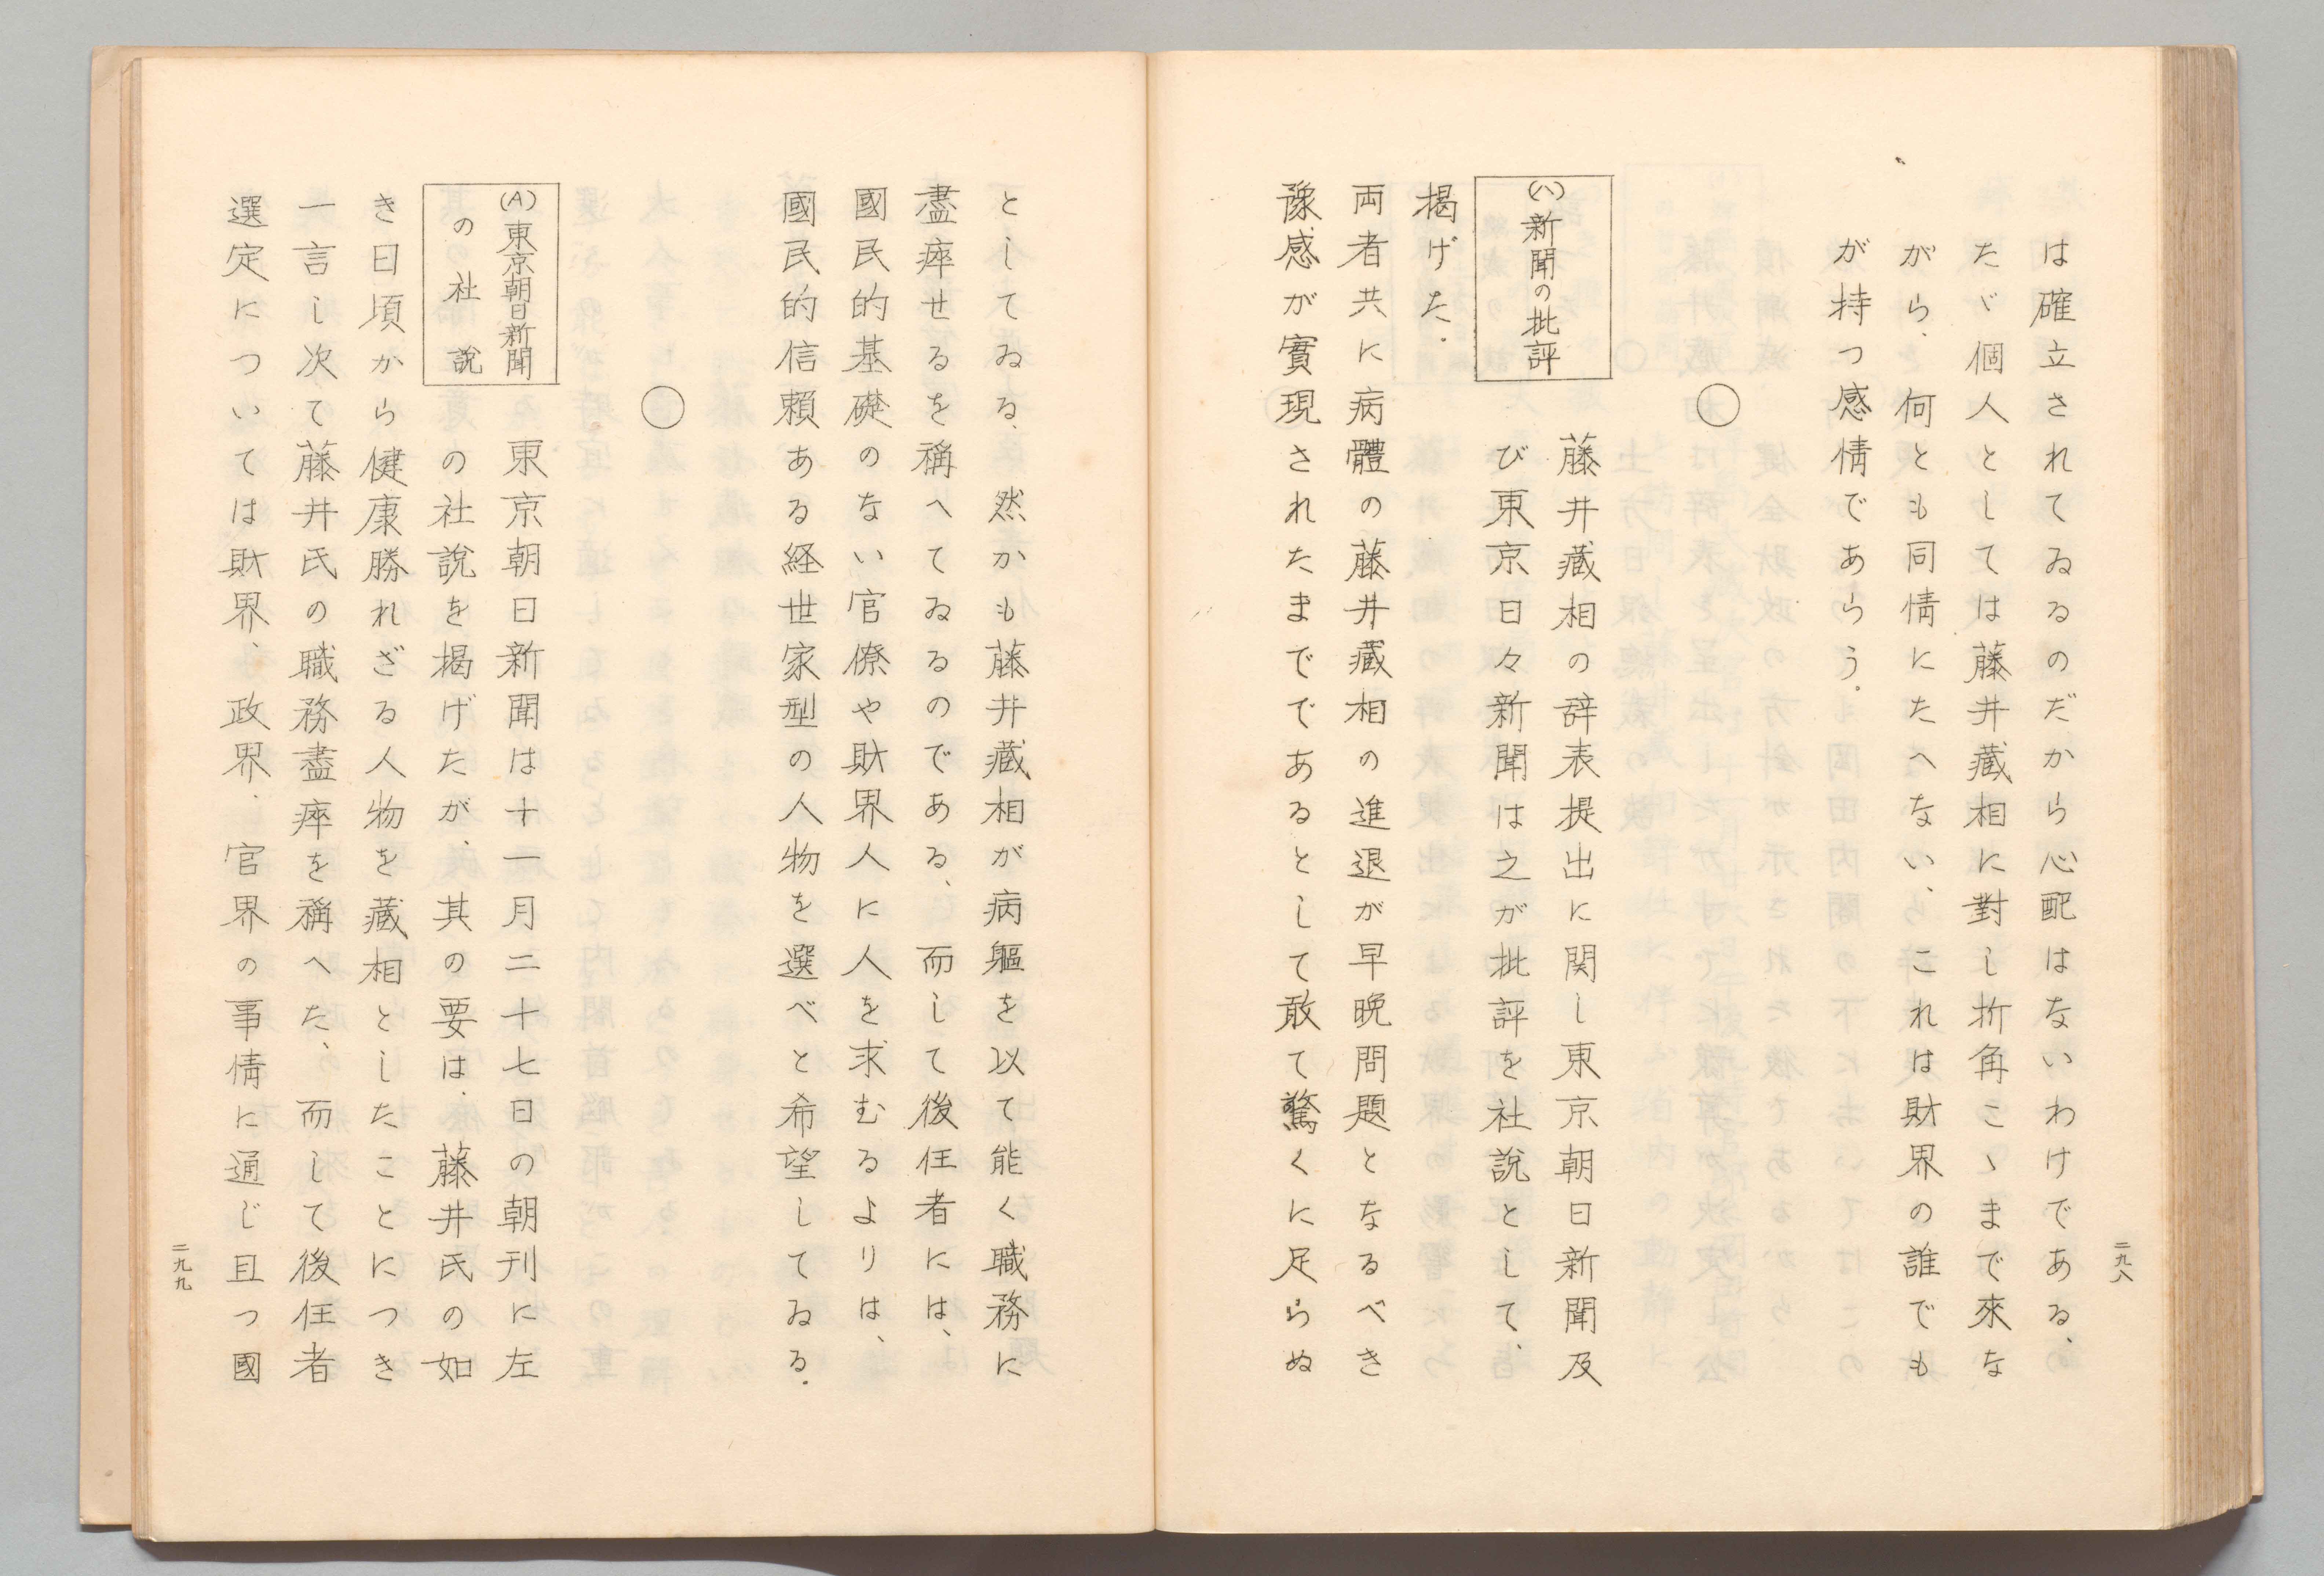 は確立されてゐるのだから心配はないわけである、
たゞ個人としては藤井藏相に對し折角こゝまで來な
がら、何とも同情にたへない、これは財界の誰でも
が持つ感情であらう。
○
(ハ)新聞の批評
藤井藏相の辞表提出に関し東京朝日新聞及
び東京日々新聞は之が批評を社説として、
掲げた。
両者共に病體の藤井藏相の進退が早晩問題となるべき
豫感が實現されたまでであるとして敢て驚くに足らぬ
二九八
としてゐる、然かも藤井藏相が病軀を以て能く職務に
盡瘁せるを稱へてゐるのである、而して後任者には、
國民的基礎のない官僚や財界人に人を求むるよりは、
國民的信頼ある経世家型の人物を選べと希望してゐる。
○
(A)東京朝日新聞
の社説
東京朝日新聞は十一月二十七日の朝刊に左
の社説を掲げたが、其の要は、藤井氏の如
き日頃から健康勝れざる人物を藏相としたことにつき
一言し次て藤井氏の職務盡瘁を稱へた、而して後任者
選定については財界、政界、官界の事情に通じ且つ國
二九九